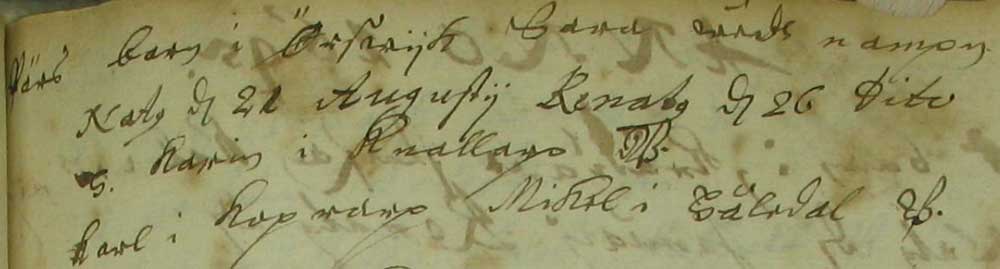 Pärs barn i Örswijk Sara weds nampn
Nat9 d 21 Augustij Renat9 d 26 Dito
S. Karin i Knallarp
Karl i Koprarp Mikel i Båledal